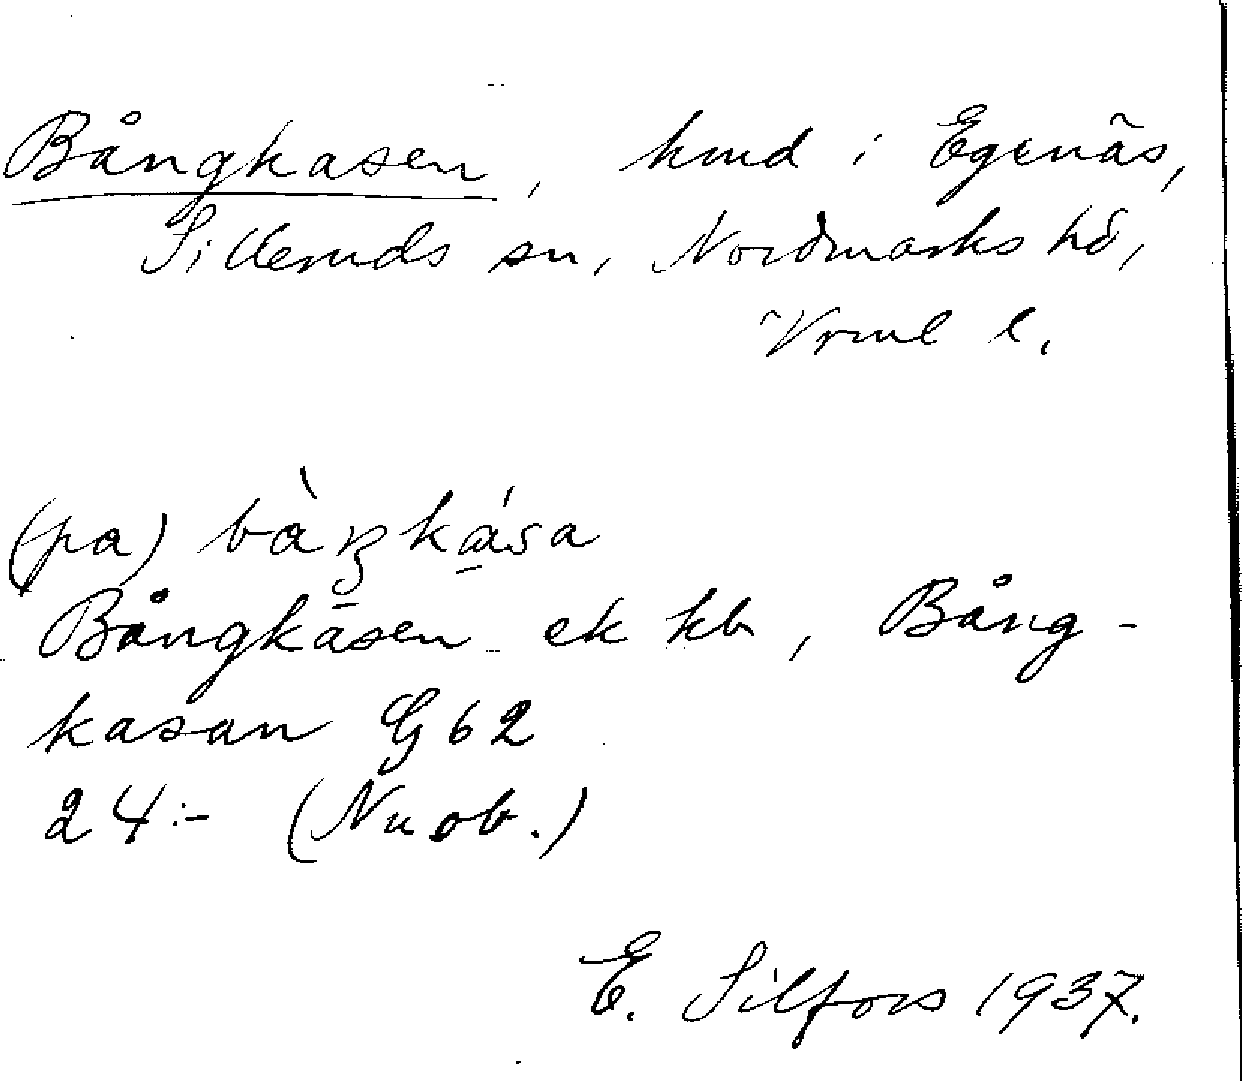 Bångkasen, hmd i Egenäs,
Silleruds sn, Nordmarks hd,
Vrml l.
(pa) bàŋkása
Bångkåsen ek kb, Bång-
kasan G62
24:- (Nu ob.)
E. Silfors 1937.